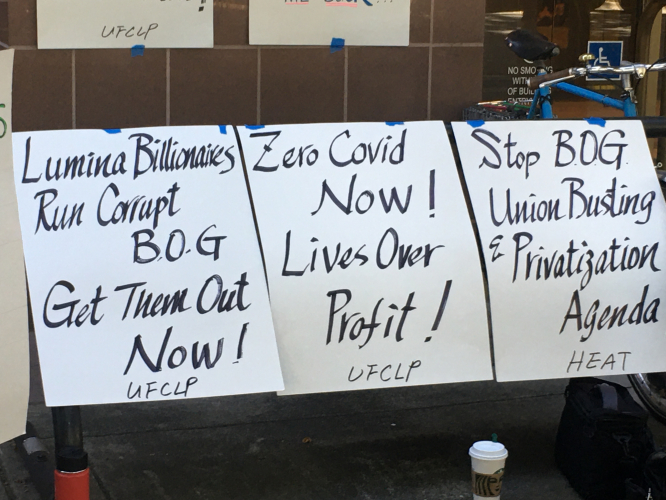 UFCLP
Lumina Billionaires
Run Corrupt
B.O.G
Get Them Out
Now!
UFCLP
Zero Covid
Now!
Lives Over
Profit!
UFCLP
Stop B.O.G.
Union Busting
& Privatization
Agenda
HEAT
NO SMOKING
WITH
OF